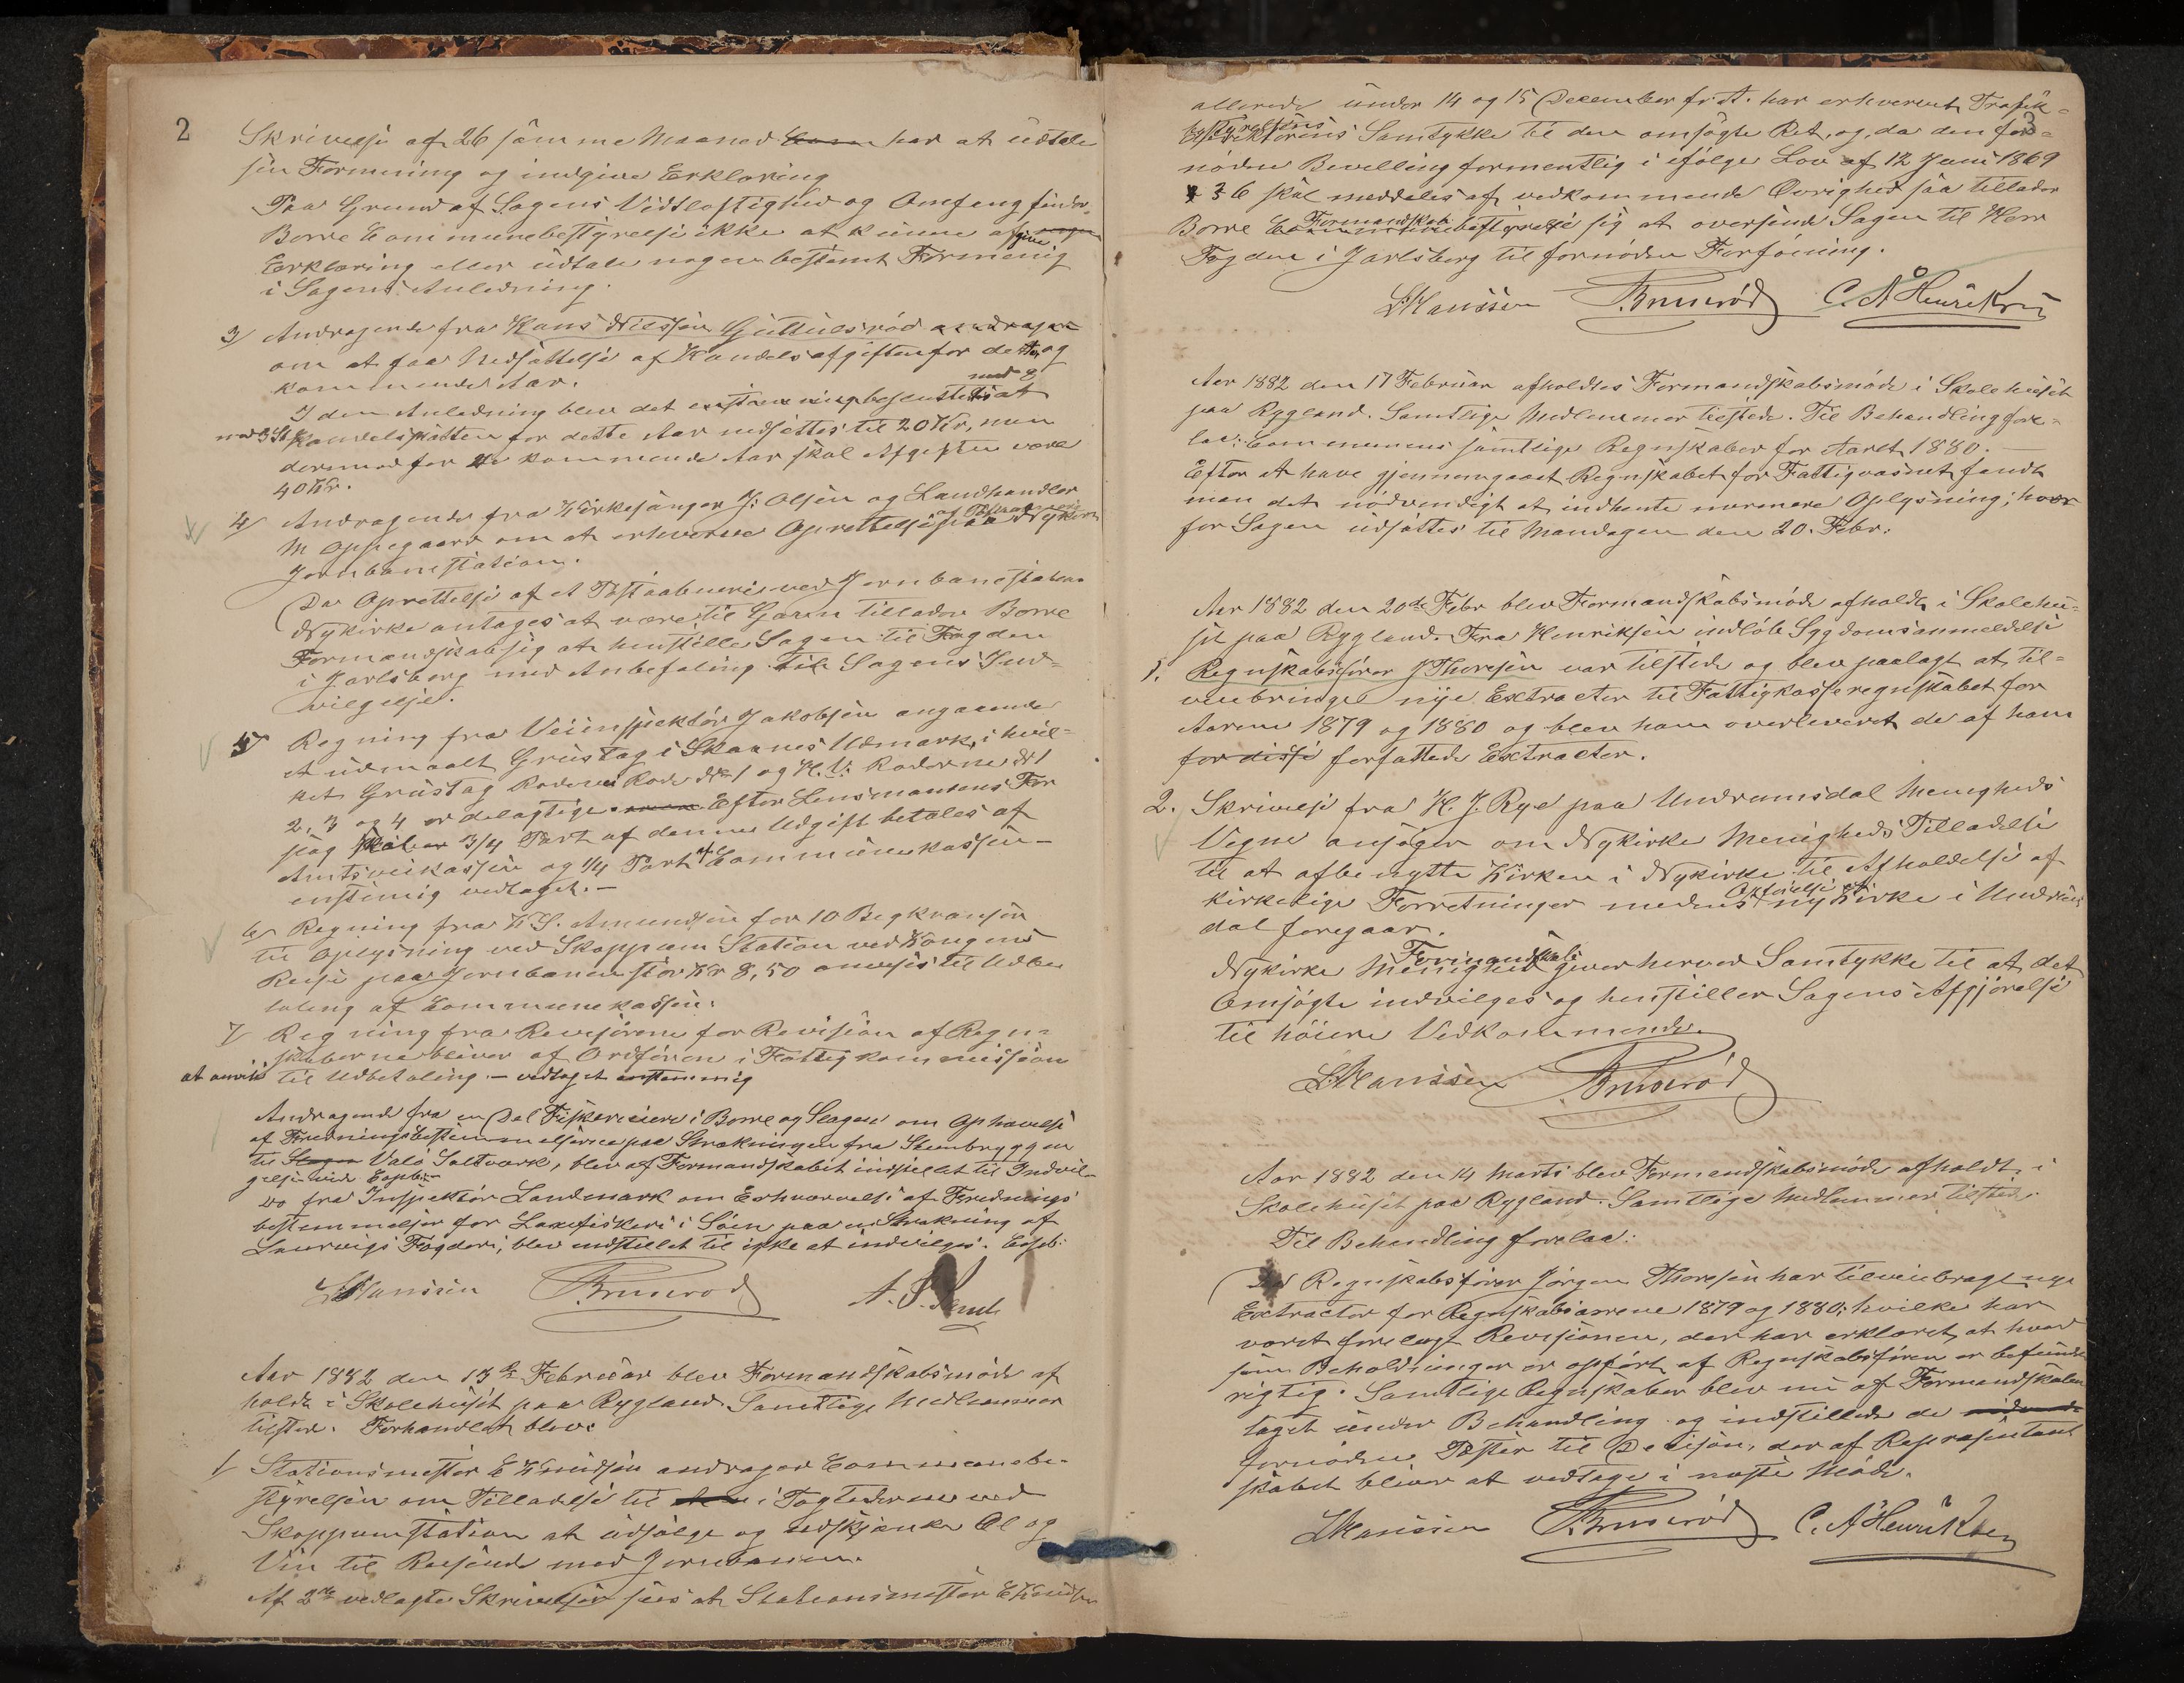 2
Skrivelse af 26 samme Maaned har at udtale
sin Formening og indgive Erklæring
Paa Grund af Sagens Vidtløftighed og Omfang finder
Borre Communebestyrelse ikke at kunne afgive
Erklæring eller udtale nogen bestemt Formening
i Sagens Anledning.
3/ Andragende fra Hans Nilssen Guttulsrød
om at faa Nedsættelse af Handelsafgiften for dette og
kommende Aar.
I den Anledning blev det besluttet at
med 3 St Handelsskatten for dette Aar nedsættes til 20 Kr, men
dermod for de kommende Aar skal Afgiften være
40 Kr.
4/ Andragende fra Kirkesanger J. Olsen og Landhandler
M Oppegaard om at erhverve Oprettelse paa Nykirke
Jernbanestation.
Da Oprettelse af et Postaabneri ved Jernbanestation
Nykirke antages at være til Gavn tillader Borre
Formandskab sig at henstille Sagen til Fogden
i Jarlsberg med Anbefaling til Sagens Ind-
vilgelse.
5 Regning fra Veiinspektør Jakobsen angaaende
et udmaalt Grustag i Skaanes Udmark, i hvil-
ket Grustag Rode No 1 og H.V. Roderne No 1
2, 3 og 4 er delagtige. Efter Lensmandens For
slag 3/4 Part af denne Udgift betales af
Amtsveikassen og 1/4 Part af Communekassen -
enstemig vedtaget. -
6/ Regning fra K S. Amundsen for 10 Begkranse
til Oplysning ved Skoppum Station ved Kongens
Reise paa Jernbanen stor Kr 8,50 anvises til Udbe
taling af Communekassen.
7/ Regning fra Revisorerne for Revision af Regn-
skaberne bliver af Ordføreren i Fattigkommissionen
at anvise til Udbetaling. - vedtaget enstemmig
Andragende fra en Del Fiskerieiere i Borre og Slagen om Ophævelse
af Fredningsbestemmelserne paa Strækningen fra Stenbryggen
til Valø Saltværk, blev af Formandskabet indstillet til Indvil-
gelse
Do fra Inspektør Landmark om Erhvervelse af Frednings
bestemmelser for Laxefiskeri i Søen paa en Strækning af
Laurvigs Fogderi, blev indstillet til ikke at indvilges.
L Hanssen Brunerød A. S.
Aar 1882 den 13de Februar blev Formandskabsmøde af
holdt i Skolehuset paa Rygland. Samtlige Medlemmer
tilstede. Forhandlet blev:
1/ Stationsmester E Knudsen andrager Communebe-
styrelsen om Tilladelse til i Togtiderne ved
Skoppum Station at udsælge og udskjænke Øl og
Vin til Reisende med Jernbanen.
Af 2de vedlagte Skrivelser sees at Stationsmester E Knudsen
3
allerede under 14 og 15 December f. A. har erhvervet Trafik-
bestyrelsens Samtykke til den omsøgte Ret, og, da den for-
nødne Bevilling formentlig i ifølge Lov af 12 Juni 1869
§ 6 skal meddeles af vedkommende Øvrighed saa tillader
Borre Formandskab sig at oversende Sagen til Herr
Fogden i Jarlsberg til fornøden Forføining.
L Hanssen Brunerød C. A Henriksen
Aar 1882 den 17 Februar afholdtes Formandskabsmøde i Skolehuset
paa Rygland. Samtlige Medlemmer tilstede. Til Behandling fore-
laa: Communens samtlige Regnskaber for Aaret 1880. -
Efter at have gjennemgaaet Regnskabet for Fattigvæsnet fandt
man det nødvendigt at indhente nærmere Oplysning; hvor
for Sagen udsattes til Mandagen den 20. Febr.
Aar 1882 den 20de Febr blev Formandskabsmøde afholdt i Skolehu-
set paa Rygland. Fra Henriksen indløb Sygdomsanmeldelse
1. Regnskabsfører J Thoresen var tilstede og blev paalagt at til-
veiebringe nye Extracter til Fattigkasseregnskabet for
Aarene 1879 og 1880 og blev ham overleveret de af ham
for disse forfattede Extracter.
2. Skrivelse fra H. J. Rye paa Undrumsdal Menigheds
Vegne ansøger om Nykirke Menigheds Tilladelse
til at afbenytte Kirken i Nykirke til Afholdelse af
kirkelige Forretninger medens Opførelse af ny Kirke i Undrums
dal foregaar.
Nykirke Formandskab giver herved Samtykke til at det
Omsøgte indvilges og henstiller Sagens Afgjørelse
til høiere Vedkommende.
L Hanssen Brunerød
Aar 1882 den 14 Marts blev Formandskabsmøde afholdt i
Skolehuset paa Rygland. Samtlige Medlemmer tilstede.
Til Behandling forelaa:
Regnskabsfører Jørgen Thoresen har tilveiebragt nye
Extracter for Regnskabsaarene 1879 og 1880; hvilke har
været forelagt Revisionen, der har erklæret, at hvad
som Beholdninger er opført af Regnskabsføren er befundet
rigtig. Samtlige Regnskaber blev nu af Formandskabet
taget under Behandling og indstillede de
fornødne Poster til Decision, der af Repræsentant
skabet bliver at vedtage i næste Møde.
L Hanssen Brunerød C. A Henriksen